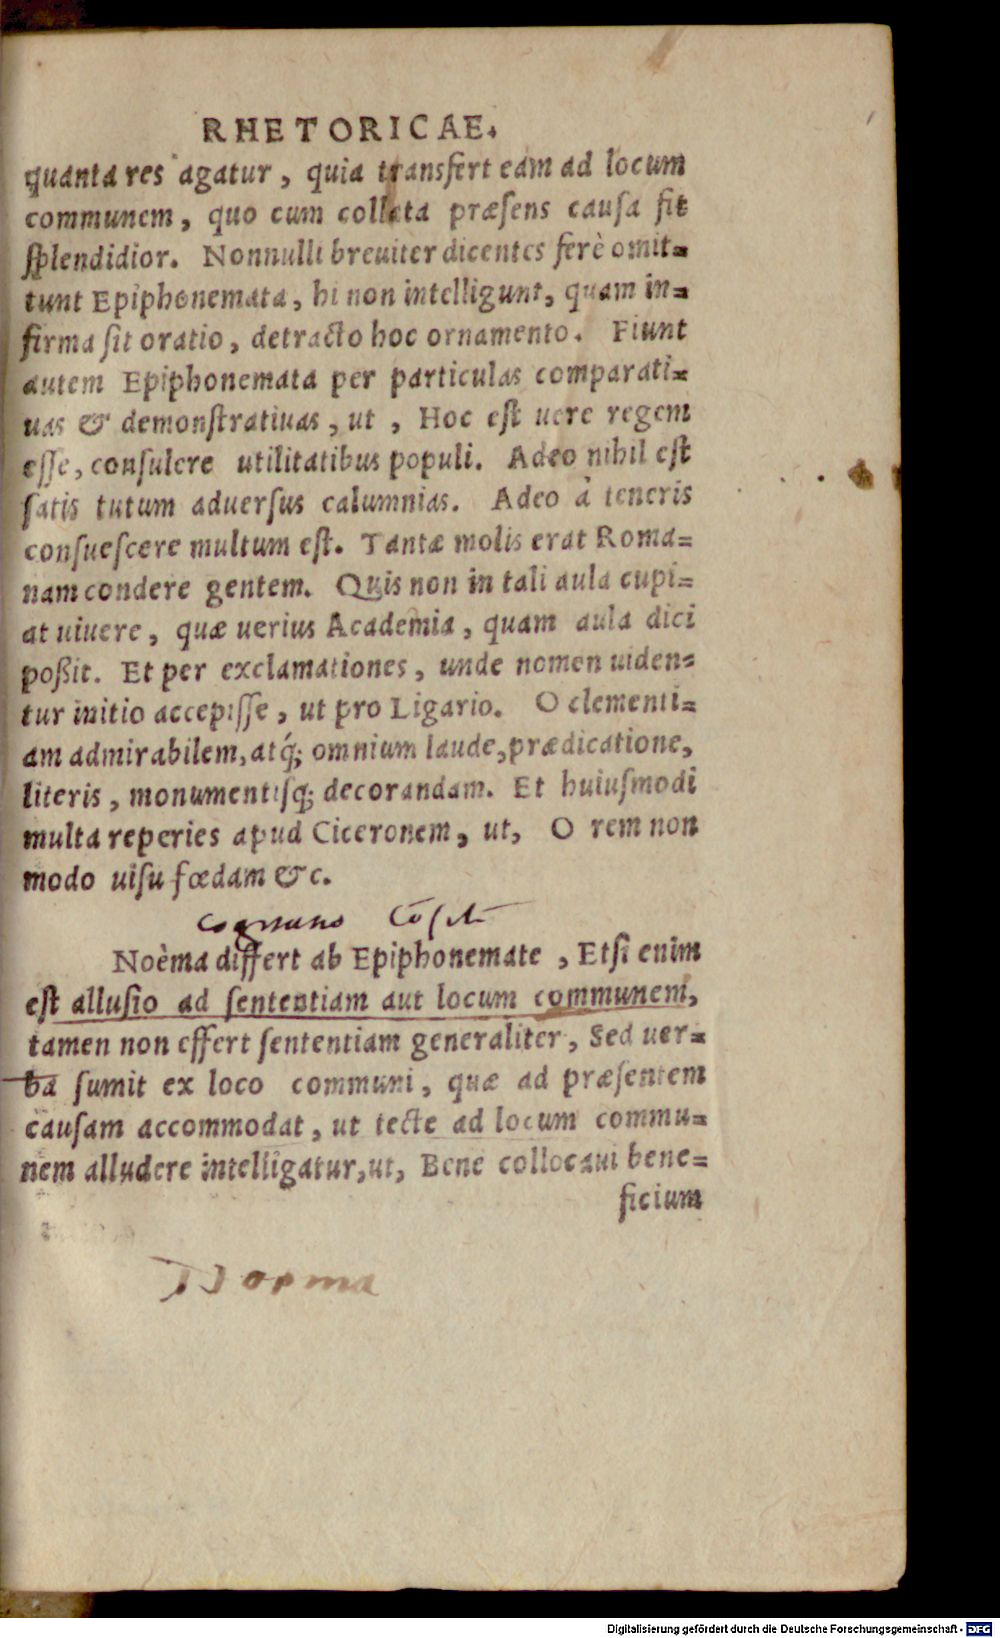 RHETORICAE.
quanta res agatur, quia transfert eam ad locum
communem, quo cum collata præsens causa fit
ſplendidior. Nonnulli breuiter dicentes ferè omit-
tunt Epiphonemata, hi non intelligunt, quam in-
firma ſit oratio, detracto hoc ornamento. Fiunt
autem Epiphonemata per particulas comparati-
uas & demonſtratiuas, ut, Hoc eſt uere regem
eſſe, conſulere utilitatibus populi. Adeo nihil eſt
ſatis tutum aduerſus calumnias. Adeo à teneris
conſueſcere multum eſt. Tantæ molis erat Roma-
nam condere gentem. Quis non in tali aula cupi-
at uiuere, quæ uerius Academia, quam aula dici
poßit. Et per exclamationes, unde nomen uiden-
tur initio accepiſſe, ut pro Ligario. O clementi-
am admirabilem, atq́; omnium laude, prædicatione,
literis, monumentiſq; decorandam. Et huiuſmodi
multa reperies apud Ciceronem, ut, O rem non
modo uiſu fœdam &c.
Noèma differt ab Epiphonemate, Etſi enim
eſt alluſio ad ſententiam aut locum communem,
tamen non effert ſententiam generaliter, Sed uer-
ba ſumit ex loco communi, quæ ad præſentem
cauſam accommodat, ut tecte ad locum commu-
nem alludere intelligatur, ut, Bene collocaui bene-
ficium
Digitalisierung gefördert durch die Deutsche Forschungsgemeinschaft - DFG